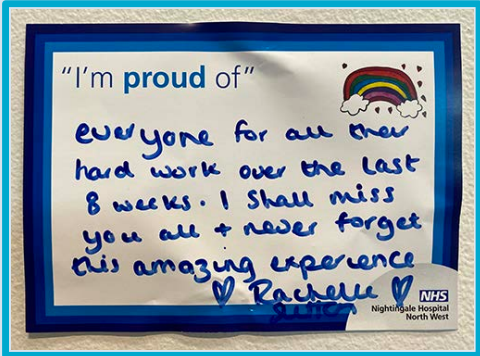 "I'm proud of"
everyone for all their
hard work over the last
8 weeks. I shall miss
you all + never forget
this amazing experience
♡ Rachelle ♡
NHS
Nightingale Hospital
North West